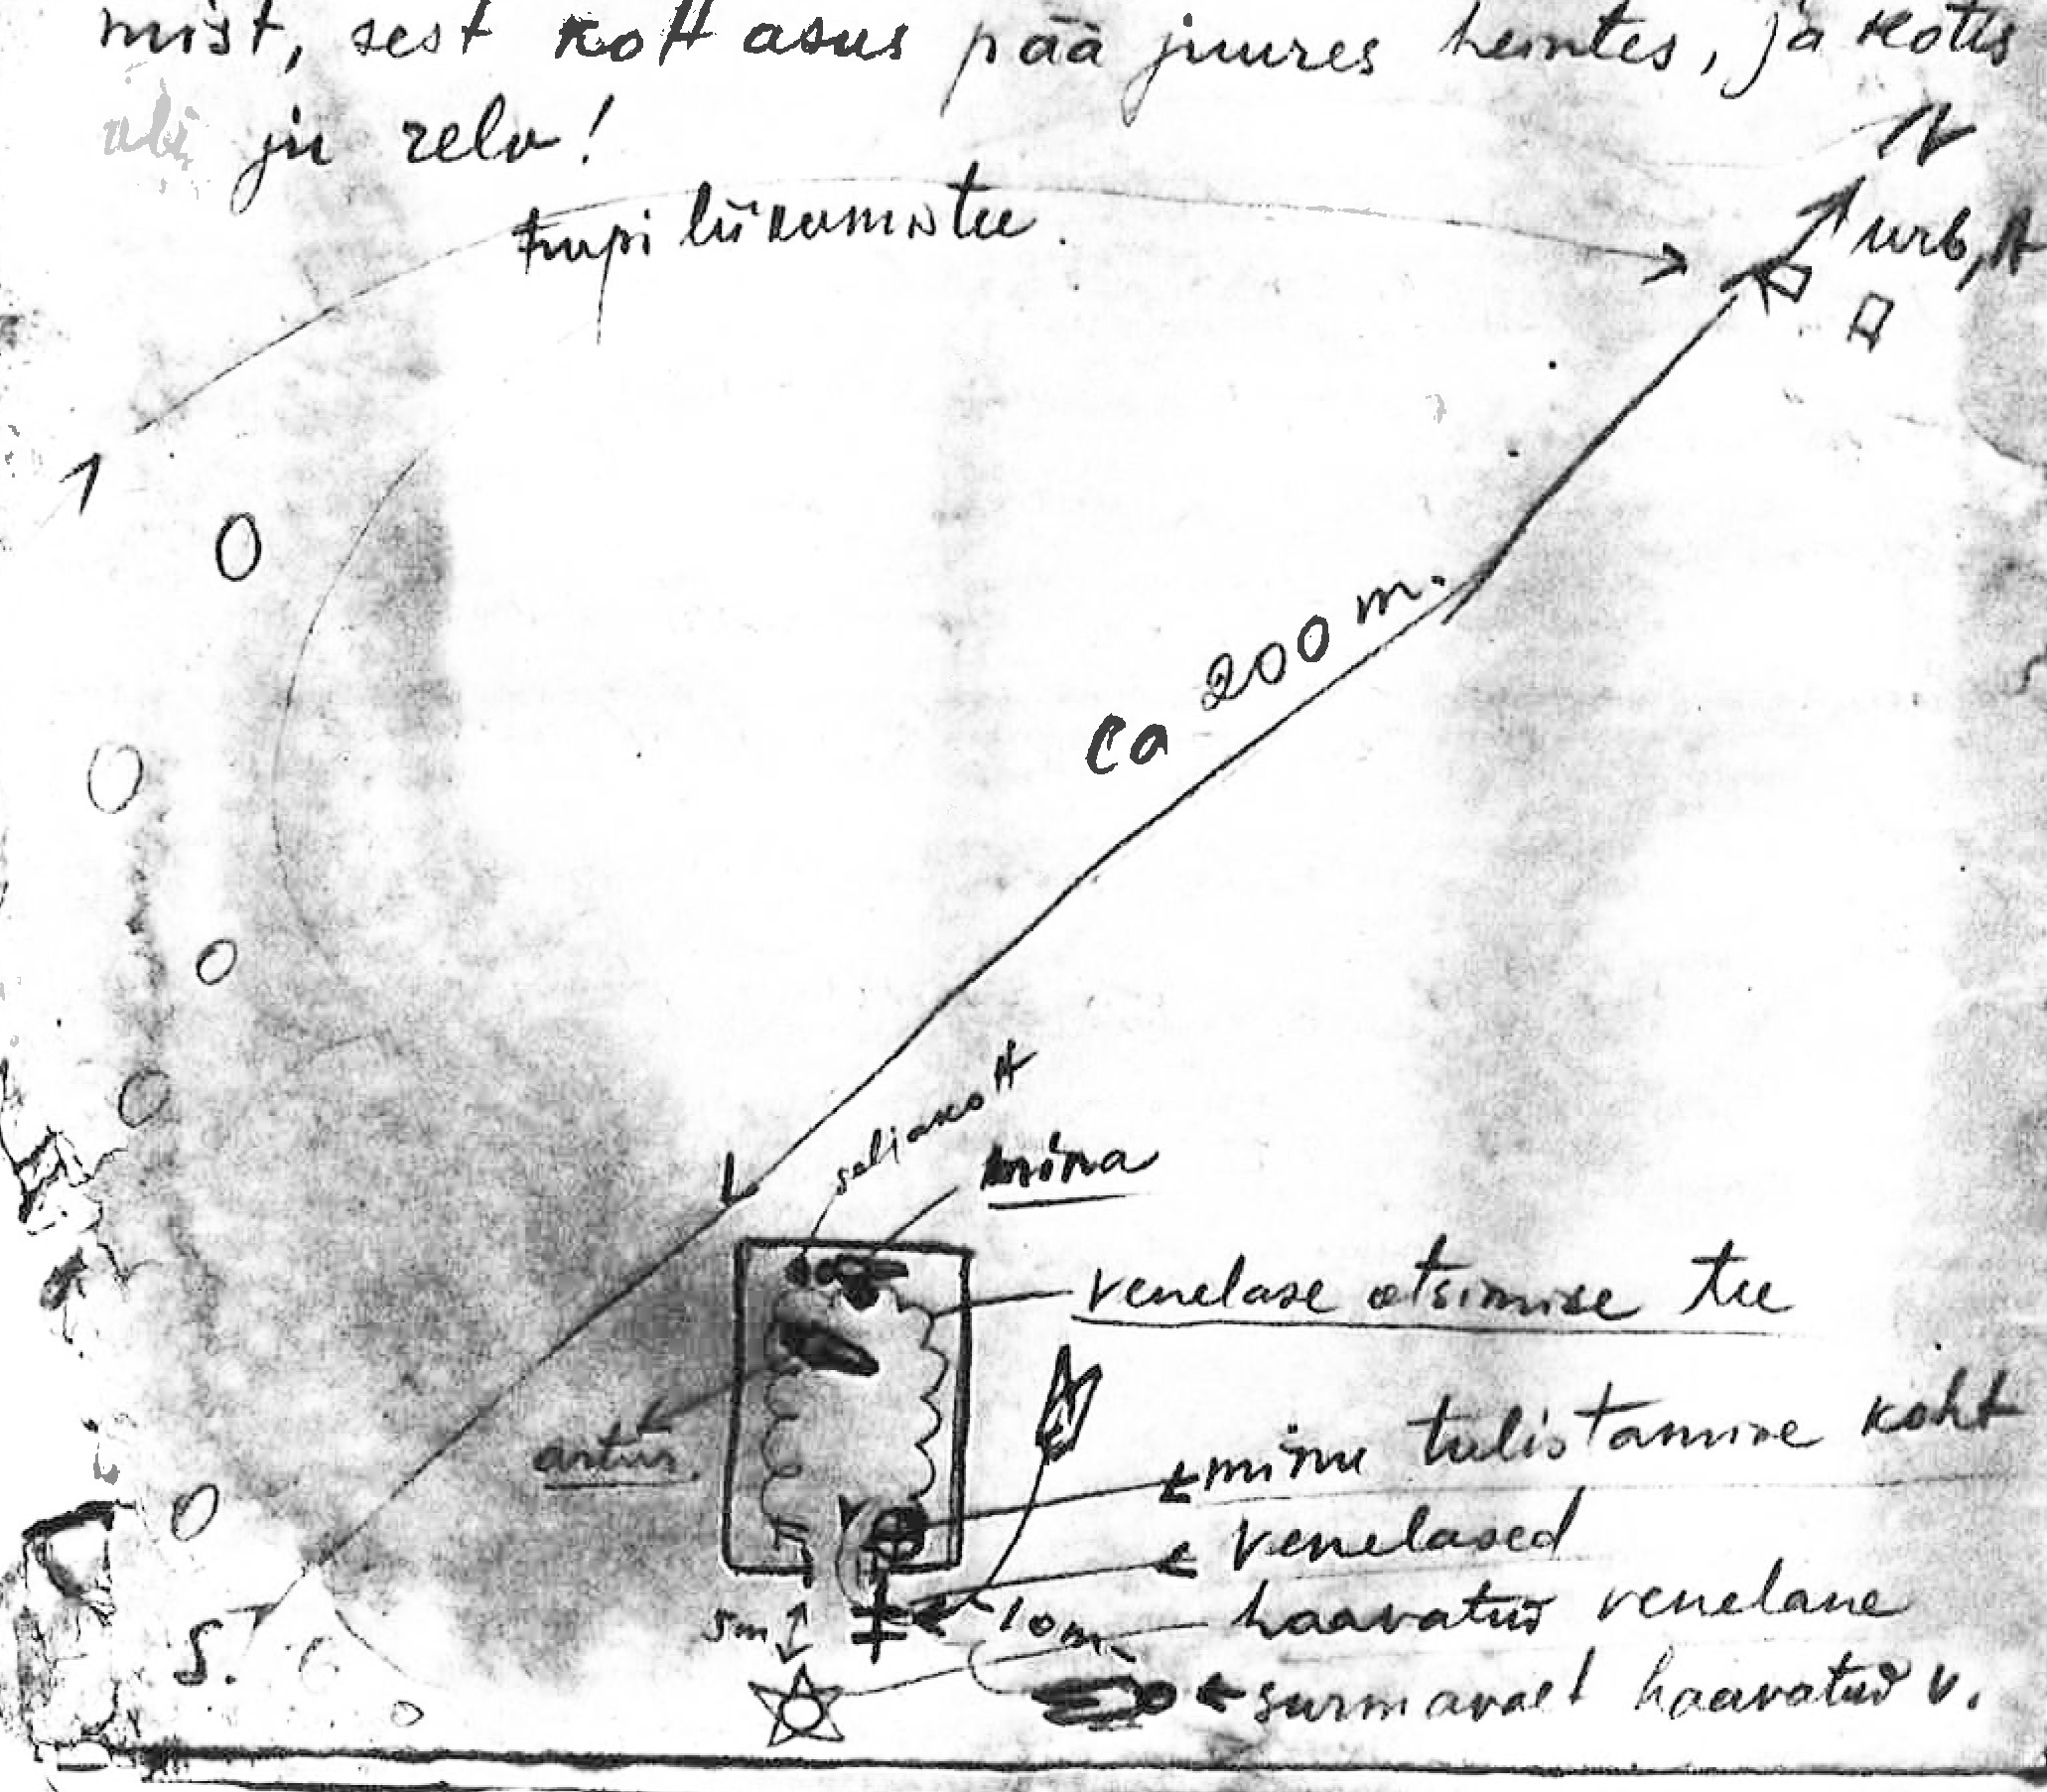 mist, sest kott asus pää juures heintes, ja kotis
oli ju relv!
N
liikumistee.
ca 200 m.
seljakott
mina
venelase otsimise tee
artur.
minu tulistamise koht
venelased
5m
10m
haavatud venelane
S.
surmavalt haavatud v.